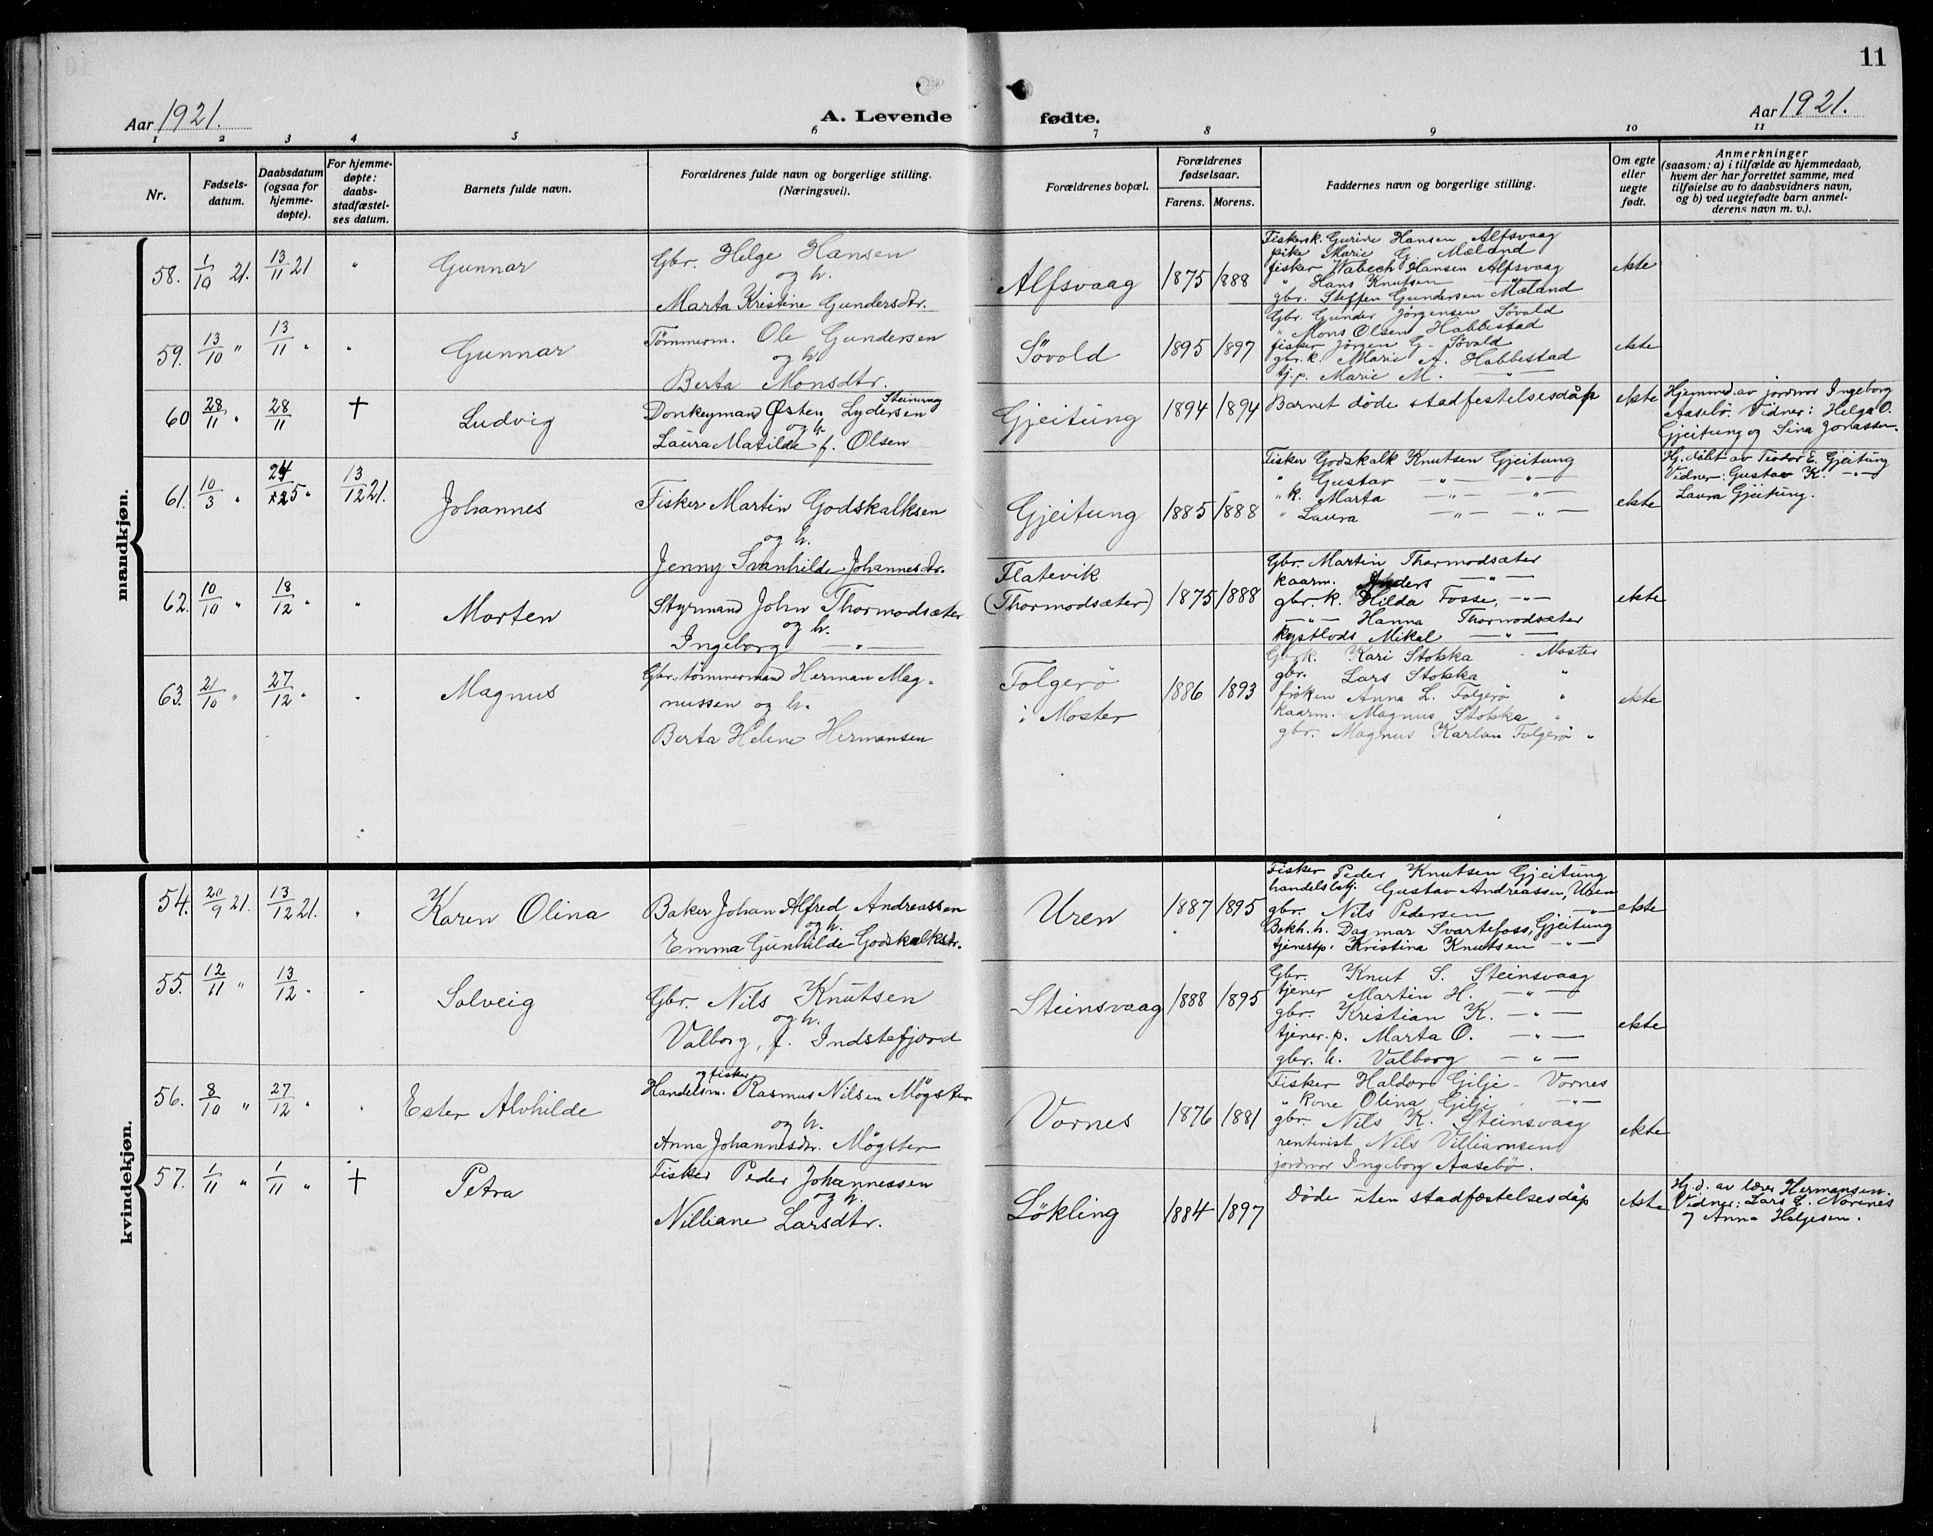 11
Aar 1921.
A. Levende fødte.
Aar 1921.
1 2 3 4 5 6 7 8 9 10 11
Nr.
Fødsels-
datum.
Daabsdatum
(ogsaa for
hjemme-
døpte).
For hjemme-
døpte:
daabs-
stadfæstel-
ses datum.
Barnets fulde navn.
Forældrenes fulde navn og borgerlige stilling.
(Næringsvei).
Forældrenes bopæl.
Forældrenes
fødselsaar.
Farens. Morens.
Faddernes navn og borgerlige stilling.
Om egte
eller
uegte
født.
Anmerkninger
(saasom: a) i tilfælde av hjemmedaab,
hvem der har forrettet samme, med
tilføielse av to daabsvidners navn,
og b) ved uegtefødte barn anmel-
derens navn m. v.).
mandkjøn.
58. 1/10 21. 13/11 21 " Gunnar
Gbr. Helge Hansen
og h.
Marta Kristine Gundersdtr.
Alfsvaag 1875 1888
Fiskersk. Gurine Hansen Alfsvaag
pike Marie G. Mæland
fisker Wabech Hansen Alfsvaag
" Hans Knutsen — " —
gbr. Steffen Gundersen Mæland
ekte
59. 13/10 " 13/11 " " Gunnar
Tømmerm. Ole Gundersen
og h.
Berta Monsdtr.
Søvold 1895 1897
Gbr. Gunder Jørgensen Søvold
" Mons Olsen Habbestad
fisker Jørgen G. Søvald
gbr. k. Marie A. Habbestad
tj. p. Marie M. — " —
ekte
60 28/11 " 28/11 † Ludvig
Steinsvag
Donkeymand Østen Lydersen
og h.
Laura Matilde f. Olsen
Gjeitung 1894 1894
Barnet døde stadfestelsesdåp
ekte
Hjemmed. av jordmor Ingeborg
Aasebö. Vidner: Helga O.
Gjeitung og Sina Jonassen.
61. 10/3 " 24/5 " 13/12 21. Johannes
Fisker Martin Godskalksen
og h.
Jenny Svanhilde Johannesdtr.
Gjeitung 1885 1888
Fisker Godskalk Knutsen Gjeitung
" Gustav — " — — " —
" k. Marta — " — — " —
" Laura — " — — " —
ekte
Hj. döbt av Teodor E. Gjeitung
Vidner: Gustav K. — " —
Laura Gjeitung.
62. 10/10 " 18/12 " " Morten
Styrmand John Thormodsæter
og h.
Ingeborg — " —
Flatevik
(Thormodsæter) 1875 1888
Gbr. Martin Thormodsæter
kaarm. Anders — " —
gbr. k. Hilda Fosse, — " —
— " — Hanna Thormodsæter
kystlods Mikal — " —
ekte
63. 21/10 " 27/12 " " Magnus
Gbr. tømmermand Herman Mag-
nussen og h.
Berta Helene Hermansen
Folgerö
i Moster 1886 1893
Gbr. k. Kari Stokka - Moster
gbr. Lars Stokka "
fröken Anna L. Folgerö "
kaarm. Magnus Stokka "
gbr. Magnus Karlsen Folgerö "
ekte
kvindekjøn.
54. 20/9 21. 13/12 21. " Karen Olina
Baker Johan Alfred Andreassen
og h.
Emma Gunhilde Godskalksdtr.
Uren 1887 1895
Fisker Peder Knutsen Gjeitung
handelsbtj. Gustav Andreassen, Uren
gbr. Nils Pedersen — " —
Bokh. h. Dagmar Svartefoss, Gjeitung
tjenestp. Kristina Knutsen — " —
ekte
55. 12/11 " 13/12 " " Solveig
Gbr. Nils Knutsen
og h.
Valborg, f. Indstefjord
Steinsvaag 1888 1895
Gbr. Knut S. Steinsvaag
tjener Martin H. — " —
gbr. Kristian K. — " —
tjener. p. Marta O. — " —
gbr. h. Valborg — " —
ekte
56. 8/10 " 27/12 " " Ester Alvhilde
og fisker
Handelsm. Rasmus Nilsen Møgster
og h.
Anna Johannesdtr. Møgster
Vornes 1876 1881
Fisker Haldor Gilje - Vornes
" kone Olina Gilje — " —
gbr. Nils K. Steinsvaag
rentenist Nils Villiamsen
jordmor Ingeborg Aasebö.
ekte
57. 1/11 " 1/11 " † Petra
Fisker Peder Johannessen
og h.
Nilliane Larsdtr.
Lökling 1884 1897
Döde uten stadfæstelsesdåp
ekte
Hj. d. av lærer Hermansen.
Vidner: Lars E. Nornes
og Anna Helgesen.